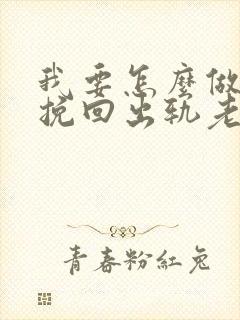 我要怎麼做
挽回出軌老
青春粉紅兔